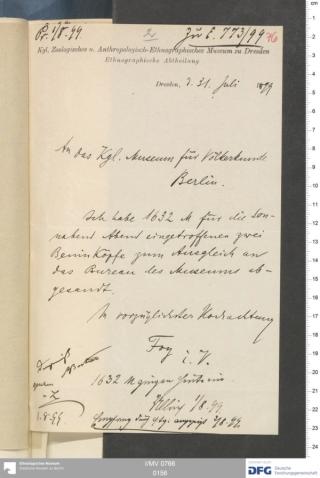 Pr. 1/8.99.
2
Zu E. 773/99
76
Kgl. Zoologisches u. Anthropologisch-Ethnographisches Museum zu Dresden
Ethnographische Abtheilung
Dresden, d. 31. Juli 1899
An das Kgl. Museum für Völkerkunde
Berlin.
Ich habe 1632 M für die Son-
nabend Abend eingetroffenen zwei
Beninköpfe zum Ausgleich an
das Bureau des Museums ab-
gesandt.
In vorzüglichster Hochachtung
Foy
i. V.
1632 M gingen heute ein
1/8 99
z
1.8.99
I/MV 0766
0156
Ethnologisches Museum
Staatliche Museen zu Berlin
DFG
Deutsche
Forschungsgemeinschaft